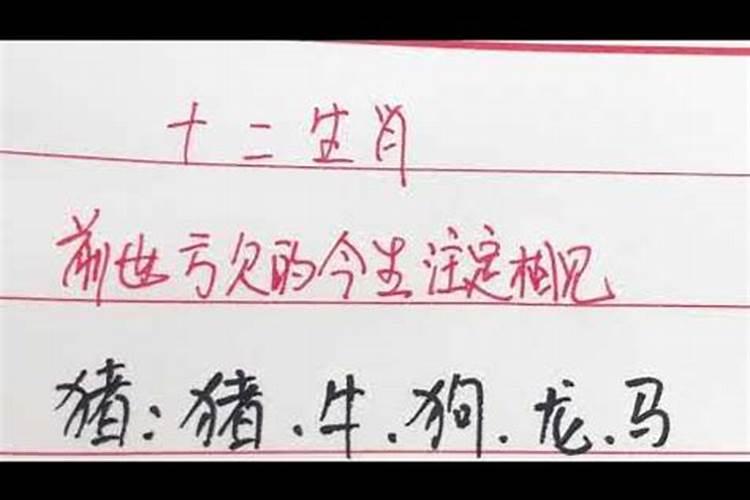 十二生肖
前世亏欠的今生注定相见
猪:猪.牛.狗.龙.马